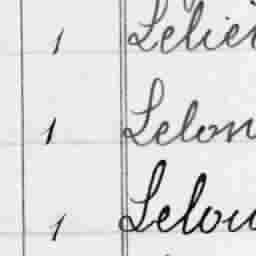 1 Lelie
1 Lelon
1 Lelou